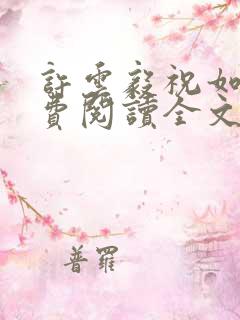 許雲毅祝如
費閱讀全文
普羅